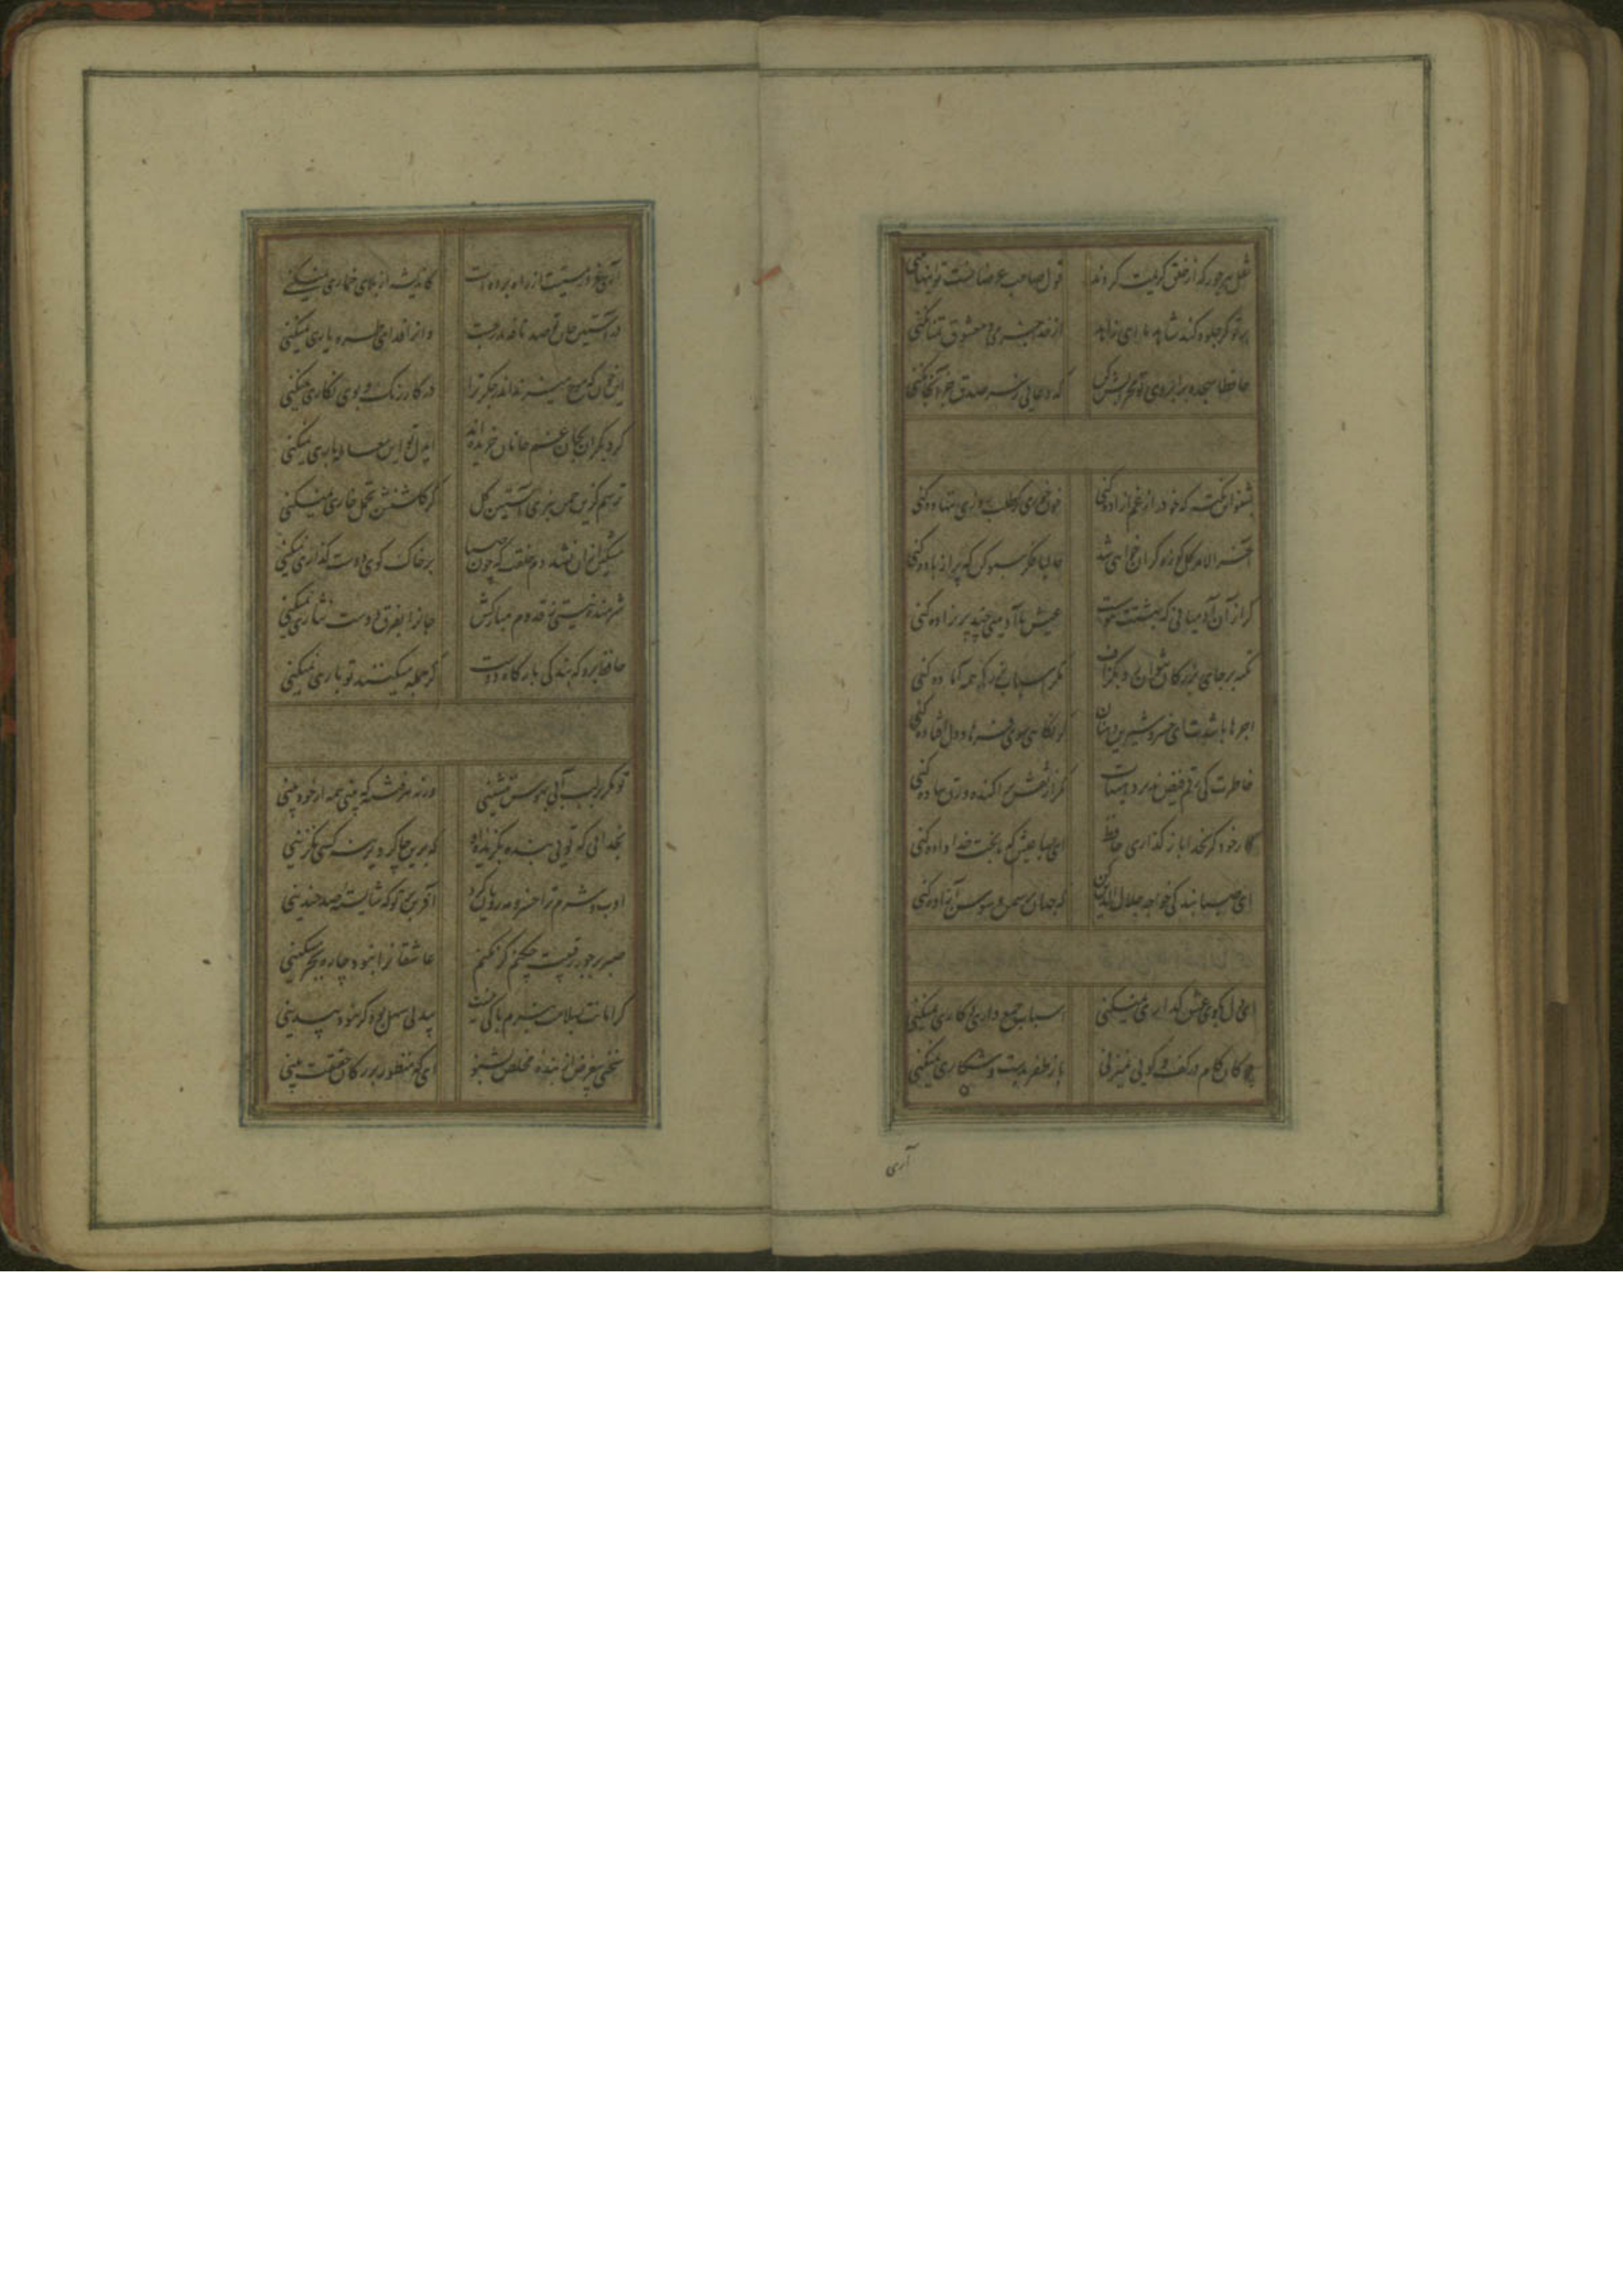 نقل هر جور که از خلق کریمت کردند قول صاحب غرضانست تو اینها نکنی
بر تو گر جلوه کند شاهد ما ای زاهد از خدا جز می و معشوق تمنا نکنی
حافظا سجده بر ابروی چو محرابش کن که دعایی ز سر صدق جز آنجا نکنی
بشنو این نکته که خود را ز غم آزاده کنی خون خوری گر طلب روزی ننهاده کنی
آخر الامر گل کوزه گران خواهی شد حالیا فکر سبو کن که پر از باده کنی
گر از آن آدمیانی که بهشتت هوست عیش با آدمیی چند پریزاده کنی
تکیه بر جای بزرگان نتوان زد بگزاف مگر اسباب بزرگی همه آماده کنی
اجرها باشدت ای خسرو شیرین دهنان گر نگاهی سوی فرهاد دل افتاده کنی
خاطرت کی رقم فیض پذیرد هیهات مگر از نقش پراکنده ورق ساده کنی
کار خود گر بخدا باز گذاری حافظ ای بسا عیش که با بخت خداداده کنی
ای صبا بندگی خواجه جلال الدین کن که جهان پر سمن و سوسن آزاده کنی
ای دل بکوی عشق گذاری نمیکنی اسباب جمع داری و کاری نمیکنی
چوگان کام در کف و گویی نمیزنی باز ظفر بدست و شکاری نمیکنی
آری
در آستین جان تو صد نافه مدرجست وانرا فدای طره یاری نمیکنی
این خون که موج میزند اندر جگر ترا در کار رنگ و بوی نگاری نمیکنی
گر دیگران بجان غم جانان خریده اند ای دل تو این معامله باری نمیکنی
ترسم کزین چمن نبری آستین گل کز گلشنش تحمل خاری نمیکنی
مشکین از آن نشد دم خلقت که چون صبا بر خاک کوی دوست گذاری نمیکنی
حافظ برو که بندگی بارگاه دوست گر جمله میکنند تو باری نمیکنی
تو مگر بر لب آبی بهوس ننشینی ورنه هر فتنه که بینی همه از خود بینی
بخدائی که توئی بنده بگزیده او که برین چاکر دیرینه کسی نگزینی
ادب و شرم ترا خسرو مه رویان کرد آفرین بر تو که شایسته صد چندینی
صبر بر جور رقیبت چکنم گر نکنم عاشقانرا نبود چاره بجز مسکینی
گر امانت بسلامت ببرم باکی نیست بیدلی سهل بود گر نبود بیدینی
سخنی بیغرض از بنده مخلص بشنو ای که منظور بزرگان حقیقت بینی